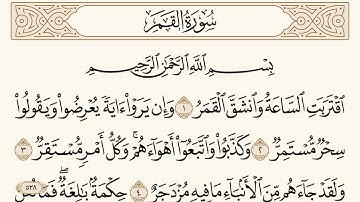 سُورَةُ القَمَرِ
بِسْمِ اللَّهِ الرَّحْمَٰنِ الرَّحِيمِ
اقْتَرَبَتِ السَّاعَةُ وَانْشَقَّ الْقَمَرُ ١ وَإِن يَرَوْا ءَايَةً يُعْرِضُوا وَيَقُولُوا
سِحْرٌ مُّسْتَمِرٌّ ٢ وَكَذَّبُوا وَاتَّبَعُوا أَهْوَاءَهُمْ ۚ وَكُلُّ أَمْرٍ مُّسْتَقِرٌّ ٣
وَلَقَدْ جَاءَهُم مِّنَ الْأَنبَاءِ مَا فِيهِ مُزْدَجَرٌ ٤ حِكْمَةٌ بَالِغَةٌ ۖ فَمَا تُغْنِ
٥٢٨